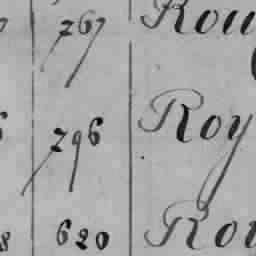 767 Rou
796 Roy
620 Rou